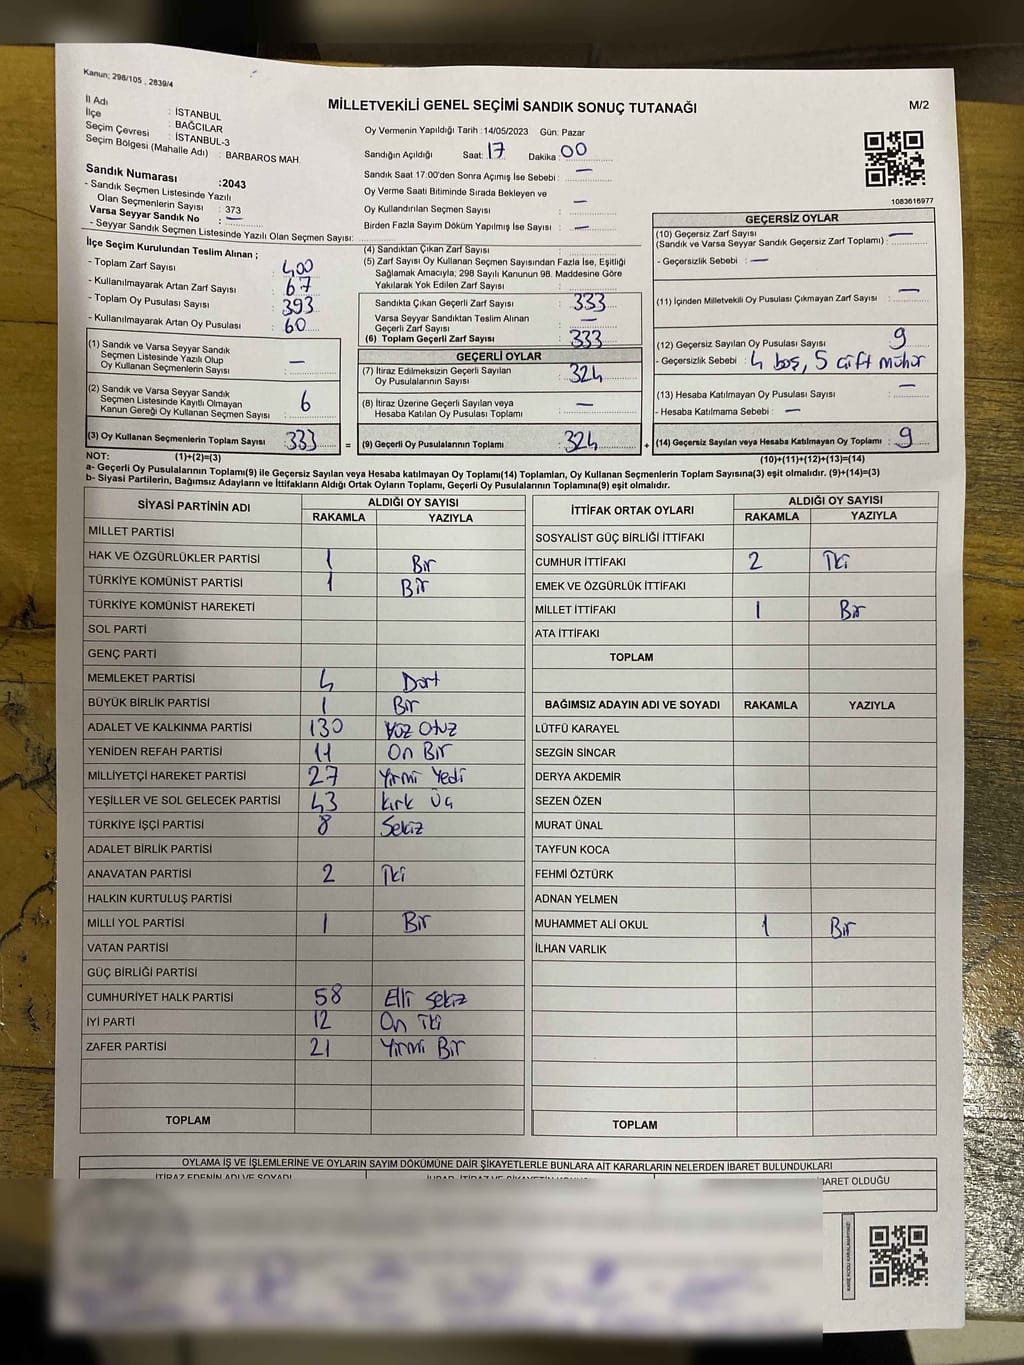 Kanun; 298/105 , 2839/4
MİLLETVEKİLİ GENEL SEÇİMİ SANDIK SONUÇ TUTANAĞI
M/2
İl Adı : İSTANBUL
İlçe : BAĞCILAR
Seçim Çevresi : İSTANBUL-3
Seçim Bölgesi (Mahalle Adı) : BARBAROS MAH.
Sandık Numarası :2043
- Sandık Seçmen Listesinde Yazılı
Olan Seçmenlerin Sayısı : 373
Varsa Seyyar Sandık No : —
- Seyyar Sandık Seçmen Listesinde Yazılı Olan Seçmen Sayısı:
Oy Vermenin Yapıldığı Tarih : 14/05/2023 Gün: Pazar
Sandığın Açıldığı Saat: 17 Dakika: 00
Sandık Saat 17:00'den Sonra Açımış İse Sebebi : —
Oy Verme Saati Bitiminde Sırada Bekleyen ve
Oy Kullandırılan Seçmen Sayısı : —
Birden Fazla Sayım Döküm Yapılmış İse Sayısı : —
1083616977
İlçe Seçim Kurulundan Teslim Alınan ;
- Toplam Zarf Sayısı : 400
- Kullanılmayarak Artan Zarf Sayısı : 67
- Toplam Oy Pusulası Sayısı : 393
- Kullanılmayarak Artan Oy Pusulası : 60
(1) Sandık ve Varsa Seyyar Sandık
Seçmen Listesinde Yazılı Olup
Oy Kullanan Seçmenlerin Sayısı : —
(2) Sandık ve Varsa Seyyar Sandık
Seçmen Listesinde Kayıtlı Olmayan
Kanun Gereği Oy Kullanan Seçmen Sayısı : 6
(3) Oy Kullanan Seçmenlerin Toplam Sayısı : 333
(1)+(2)=(3)
(4) Sandıktan Çıkan Zarf Sayısı :
(5) Zarf Sayısı Oy Kullanan Seçmen Sayısından Fazla İse, Eşitliği
Sağlamak Amacıyla; 298 Sayılı Kanunun 98. Maddesine Göre
Yakılarak Yok Edilen Zarf Sayısı :
Sandıkta Çıkan Geçerli Zarf Sayısı : 333
Varsa Seyyar Sandıktan Teslim Alınan
Geçerli Zarf Sayısı : —
(6) Toplam Geçerli Zarf Sayısı : 333
GEÇERLİ OYLAR
(7) İtiraz Edilmeksizin Geçerli Sayılan
Oy Pusulalarının Sayısı : 324
(8) İtiraz Üzerine Geçerli Sayılan veya
Hesaba Katılan Oy Pusulası Toplamı : —
= (9) Geçerli Oy Pusulalarının Toplamı : 324 +
GEÇERSİZ OYLAR
(10) Geçersiz Zarf Sayısı
(Sandık ve Varsa Seyyar Sandık Geçersiz Zarf Toplamı) : —
- Geçersizlik Sebebi : —
(11) İçinden Milletvekili Oy Pusulası Çıkmayan Zarf Sayısı : —
(12) Geçersiz Sayılan Oy Pusulası Sayısı : 9
- Geçersizlik Sebebi : 4 boş, 5 çift mühür
(13) Hesaba Katılmayan Oy Pusulası Sayısı : —
- Hesaba Katılmama Sebebi : —
(14) Geçersiz Sayılan veya Hesaba Katılmayan Oy Toplamı : 9
(10)+(11)+(12)+(13)=(14)
NOT:
a- Geçerli Oy Pusulalarının Toplamı(9) ile Geçersiz Sayılan veya Hesaba katılmayan Oy Toplamı(14) Toplamları, Oy Kullanan Seçmenlerin Toplam Sayısına(3) eşit olmalıdır. (9)+(14)=(3)
b- Siyasi Partilerin, Bağımsız Adayların ve İttifakların Aldığı Ortak Oyların Toplamı, Geçerli Oy Pusulalarının Toplamına(9) eşit olmalıdır.
SİYASİ PARTİNİN ADI ALDIĞI OY SAYISI
RAKAMLA YAZIYLA
MİLLET PARTİSİ
HAK VE ÖZGÜRLÜKLER PARTİSİ 1 Bir
TÜRKİYE KOMÜNİST PARTİSİ 1 Bir
TÜRKİYE KOMÜNİST HAREKETİ
SOL PARTİ
GENÇ PARTİ
MEMLEKET PARTİSİ 4 Dört
BÜYÜK BİRLİK PARTİSİ 1 Bir
ADALET VE KALKINMA PARTİSİ 130 Yüz Otuz
YENİDEN REFAH PARTİSİ 11 On Bir
MİLLİYETÇİ HAREKET PARTİSİ 27 Yirmi Yedi
YEŞİLLER VE SOL GELECEK PARTİSİ 43 Kırk Üç
TÜRKİYE İŞÇİ PARTİSİ 8 Sekiz
ADALET BİRLİK PARTİSİ
ANAVATAN PARTİSİ 2 İki
HALKIN KURTULUŞ PARTİSİ
MİLLİ YOL PARTİSİ 1 Bir
VATAN PARTİSİ
GÜÇ BİRLİĞİ PARTİSİ
CUMHURİYET HALK PARTİSİ 58 Elli sekiz
İYİ PARTİ 12 On İki
ZAFER PARTİSİ 21 Yirmi Bir
TOPLAM
İTTİFAK ORTAK OYLARI ALDIĞI OY SAYISI
RAKAMLA YAZIYLA
SOSYALİST GÜÇ BİRLİĞİ İTTİFAKI
CUMHUR İTTİFAKI 2 İki
EMEK VE ÖZGÜRLÜK İTTİFAKI
MİLLET İTTİFAKI 1 Bir
ATA İTTİFAKI
TOPLAM
BAĞIMSIZ ADAYIN ADI VE SOYADI RAKAMLA YAZIYLA
LÜTFÜ KARAYEL
SEZGİN SİNCAR
DERYA AKDEMİR
SEZEN ÖZEN
MURAT ÜNAL
TAYFUN KOCA
FEHMİ ÖZTÜRK
ADNAN YELMEN
MUHAMMET ALİ OKUL 1 Bir
İLHAN VARLIK
TOPLAM
OYLAMA İŞ VE İŞLEMLERİNE VE OYLARIN SAYIM DÖKÜMÜNE DAİR ŞİKAYETLERLE BUNLARA AİT KARARLARIN NELERDEN İBARET BULUNDUKLARI
İTİRAZ EDENİN ADI VE SOYADI